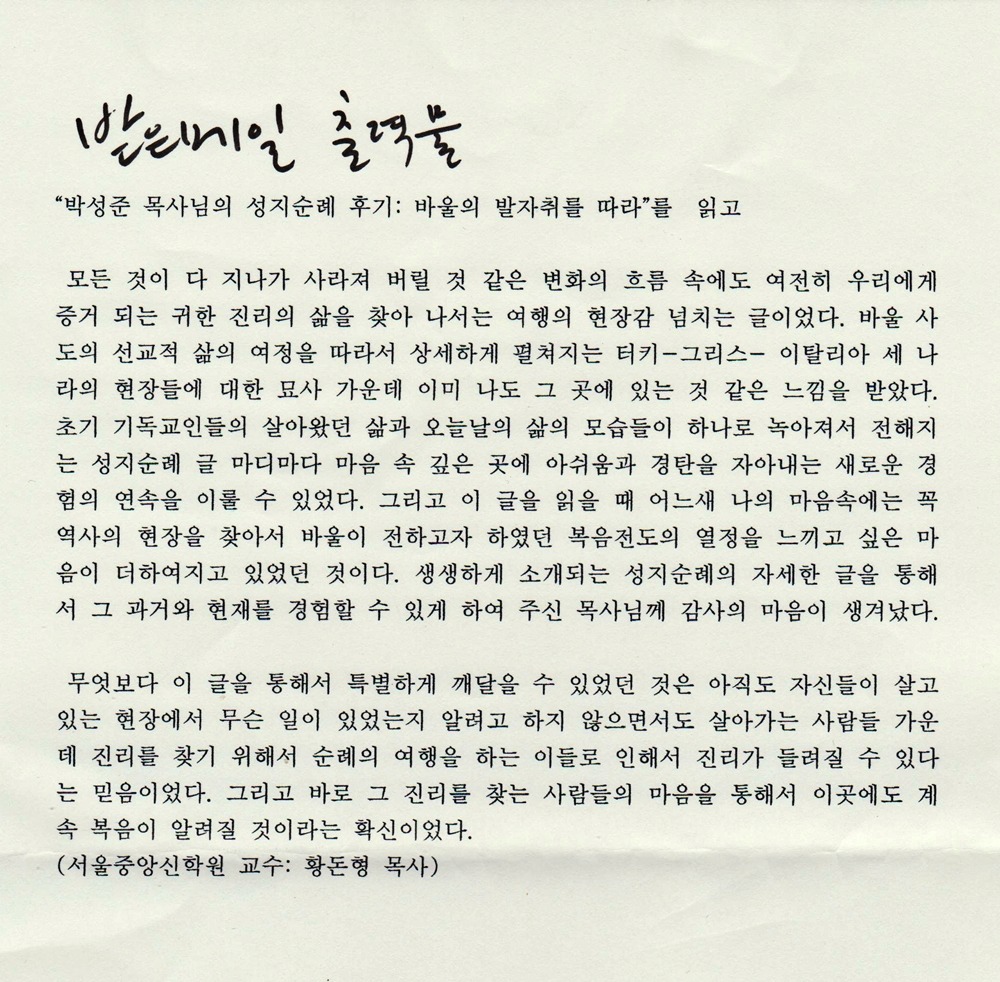 받은메일 출력물
“박성준 목사님의 성지순례 후기: 바울의 발자취를 따라”를 읽고
모든 것이 다 지나가 사라져 버릴 것 같은 변화의 흐름 속에도 여전히 우리에게
증거 되는 귀한 진리의 삶을 찾아 나서는 여행의 현장감 넘치는 글이었다. 바울 사
도의 선교적 삶의 여정을 따라서 상세하게 펼쳐지는 터키-그리스- 이탈리아 세 나
라의 현장들에 대한 묘사 가운데 이미 나도 그 곳에 있는 것 같은 느낌을 받았다.
초기 기독교인들의 살아왔던 삶과 오늘날의 삶의 모습들이 하나로 녹아져서 전해지
는 성지순례 글 마디마다 마음 속 깊은 곳에 아쉬움과 경탄을 자아내는 새로운 경
험의 연속을 이룰 수 있었다. 그리고 이 글을 읽을 때 어느새 나의 마음속에는 꼭
역사의 현장을 찾아서 바울이 전하고자 하였던 복음전도의 열정을 느끼고 싶은 마
음이 더하여지고 있었던 것이다. 생생하게 소개되는 성지순례의 자세한 글을 통해
서 그 과거와 현재를 경험할 수 있게 하여 주신 목사님께 감사의 마음이 생겨났다.
무엇보다 이 글을 통해서 특별하게 깨달을 수 있었던 것은 아직도 자신들이 살고
있는 현장에서 무슨 일이 있었는지 알려고 하지 않으면서도 살아가는 사람들 가운
데 진리를 찾기 위해서 순례의 여행을 하는 이들로 인해서 진리가 들려질 수 있다
는 믿음이었다. 그리고 바로 그 진리를 찾는 사람들의 마음을 통해서 이곳에도 계
속 복음이 알려질 것이라는 확신이었다.
(서울중앙신학원 교수: 황돈형 목사)